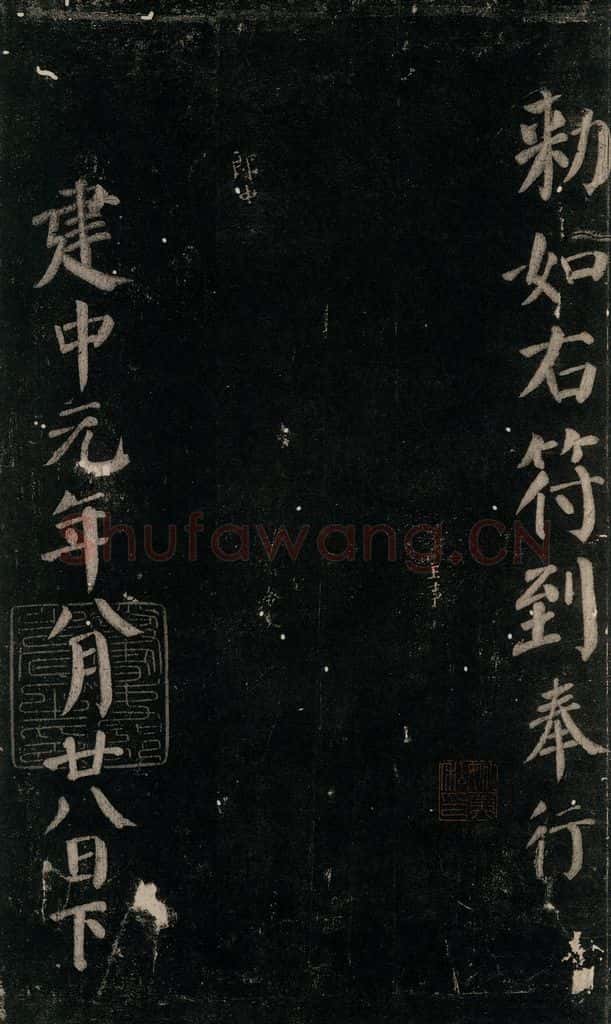 勅如右符到奉行
主事
郎中
建中元年八月廿八日下
Shufawang.CN